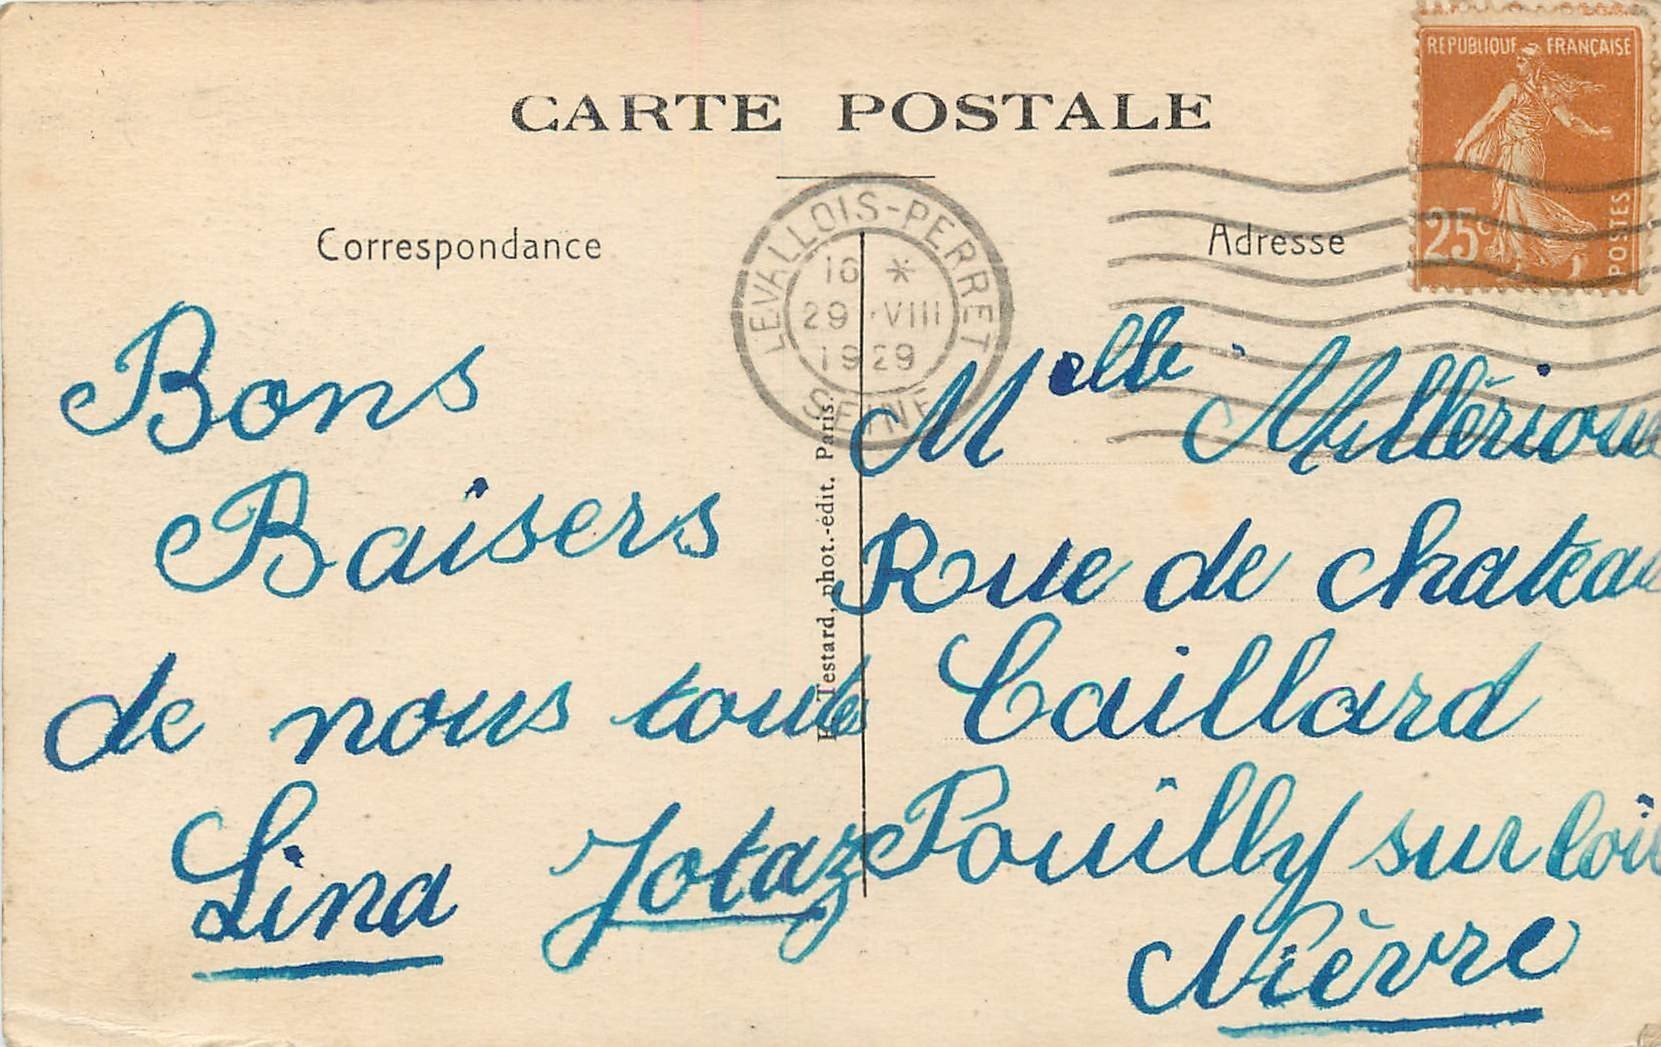 CARTE POSTALE
REPUBLIQUE FRANÇAISE
25c
POSTES
LEVALLOIS-PERRET
29 VIII
1929
SEINE
Correspondance
Adresse
Bons
Baisers
de nous toute
Lina Jotaz
Testard, phot.-édit. Paris.
Melle
Rue de Chateau
Caillard
Pouilly sur Loi
Nièvre